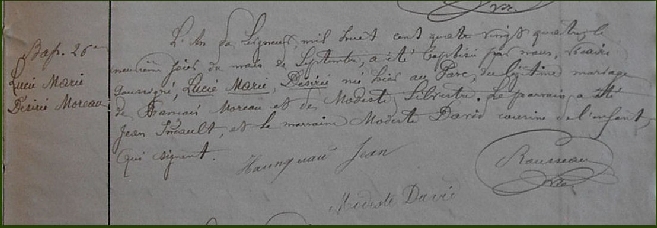 Bap. 26e
Lucie Marie
Désirée Moreau
L'An du Seigneur, mil huit cent quatre vingt quatre, le
neuvième jour du mois de Septembre, a été baptisée par nous, vicaire
soussigné, Lucie Marie, Désirée née hier au Parc, du légitime mariage
de François Moreau et de Modeste Silvestre. Le parrain a été
Jean, et la marraine Modeste David cousine de l'enfant,
qui signent.
Jean
Rousseau
Modeste David